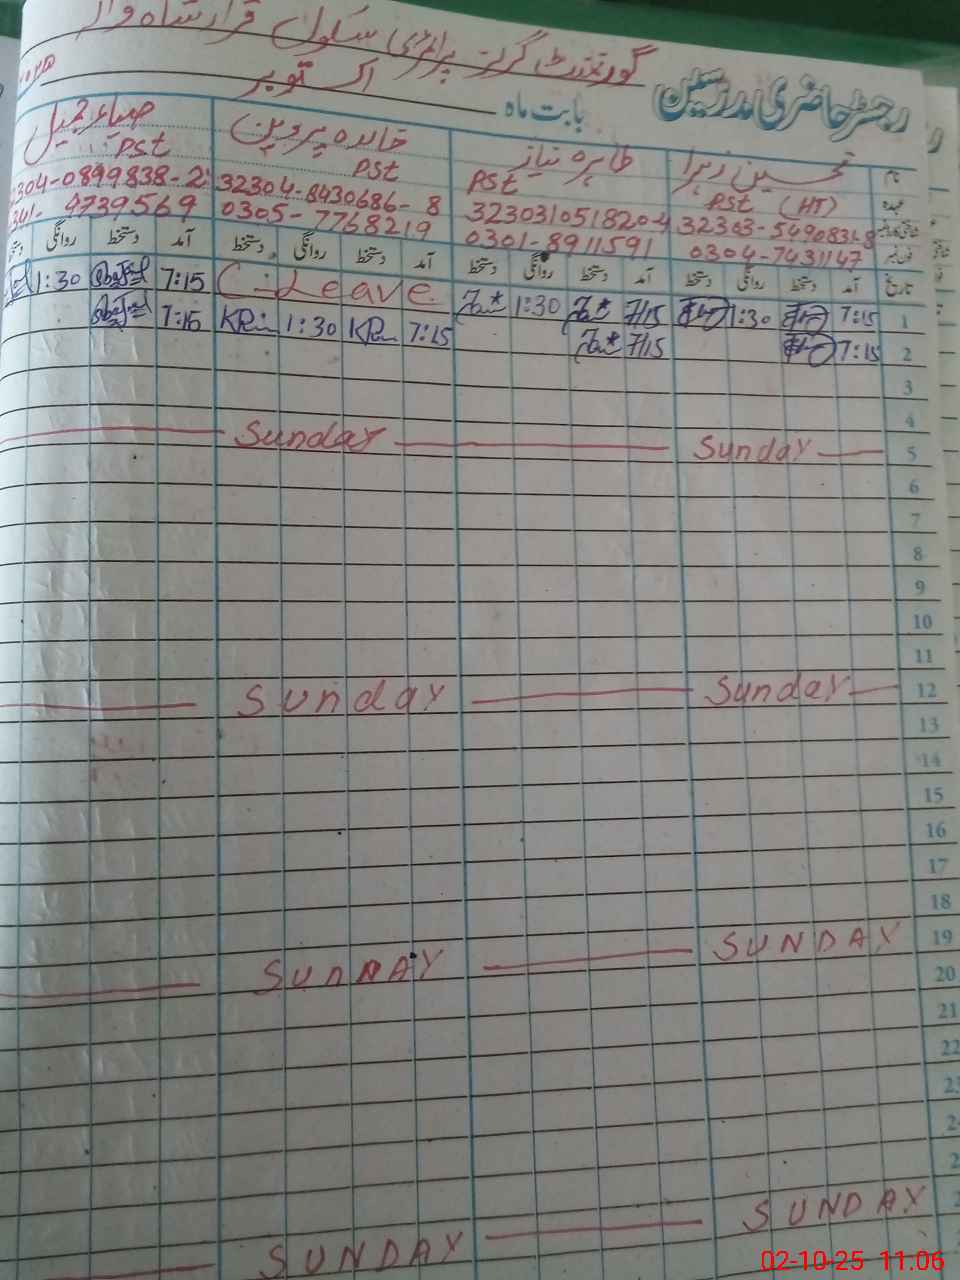 گورنمنٹ گرلز پرائمری سکول
رجسٹر حاضری مدرسین بابت ماہ اکتوبر
نام تحسین زہرا طاہرہ نیاز خالدہ پروین صباء جمیل
عہدہ PST (HT) PST PST PST
32303-5490834-8 3230310518204 32304-8430686-8 32304-0899838-2
0304-7431147 0301-8911591 0305-7768219 0341-4739569
تاریخ آمد دستخط روانگی دستخط آمد دستخط روانگی دستخط آمد دستخط روانگی دستخط آمد دستخط روانگی
1 7:15 1:30 7:15 1:30 C-Leave 7:15 1:30
2 7:15 7:15 7:15 KP 1:30 KP 7:15
3
4
5 Sunday Sunday
6
7
8
9
10
11
12 Sunday Sunday
13
14
15
16
17
18
19 SUNDAY SUNDAY
20
21
22
SUNDAY SUNDAY
02-10-25 11:06